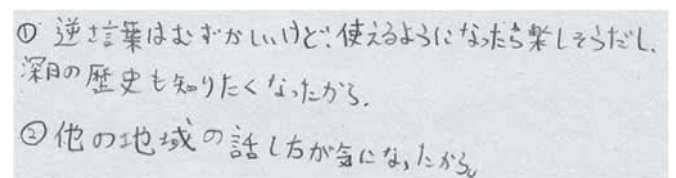 ① 逆さ言葉はむずかしいけど、使えるようになったら楽しそうだし、
深日の歴史も知りたくなったから。
② 他の地域の話し方が気になったから。